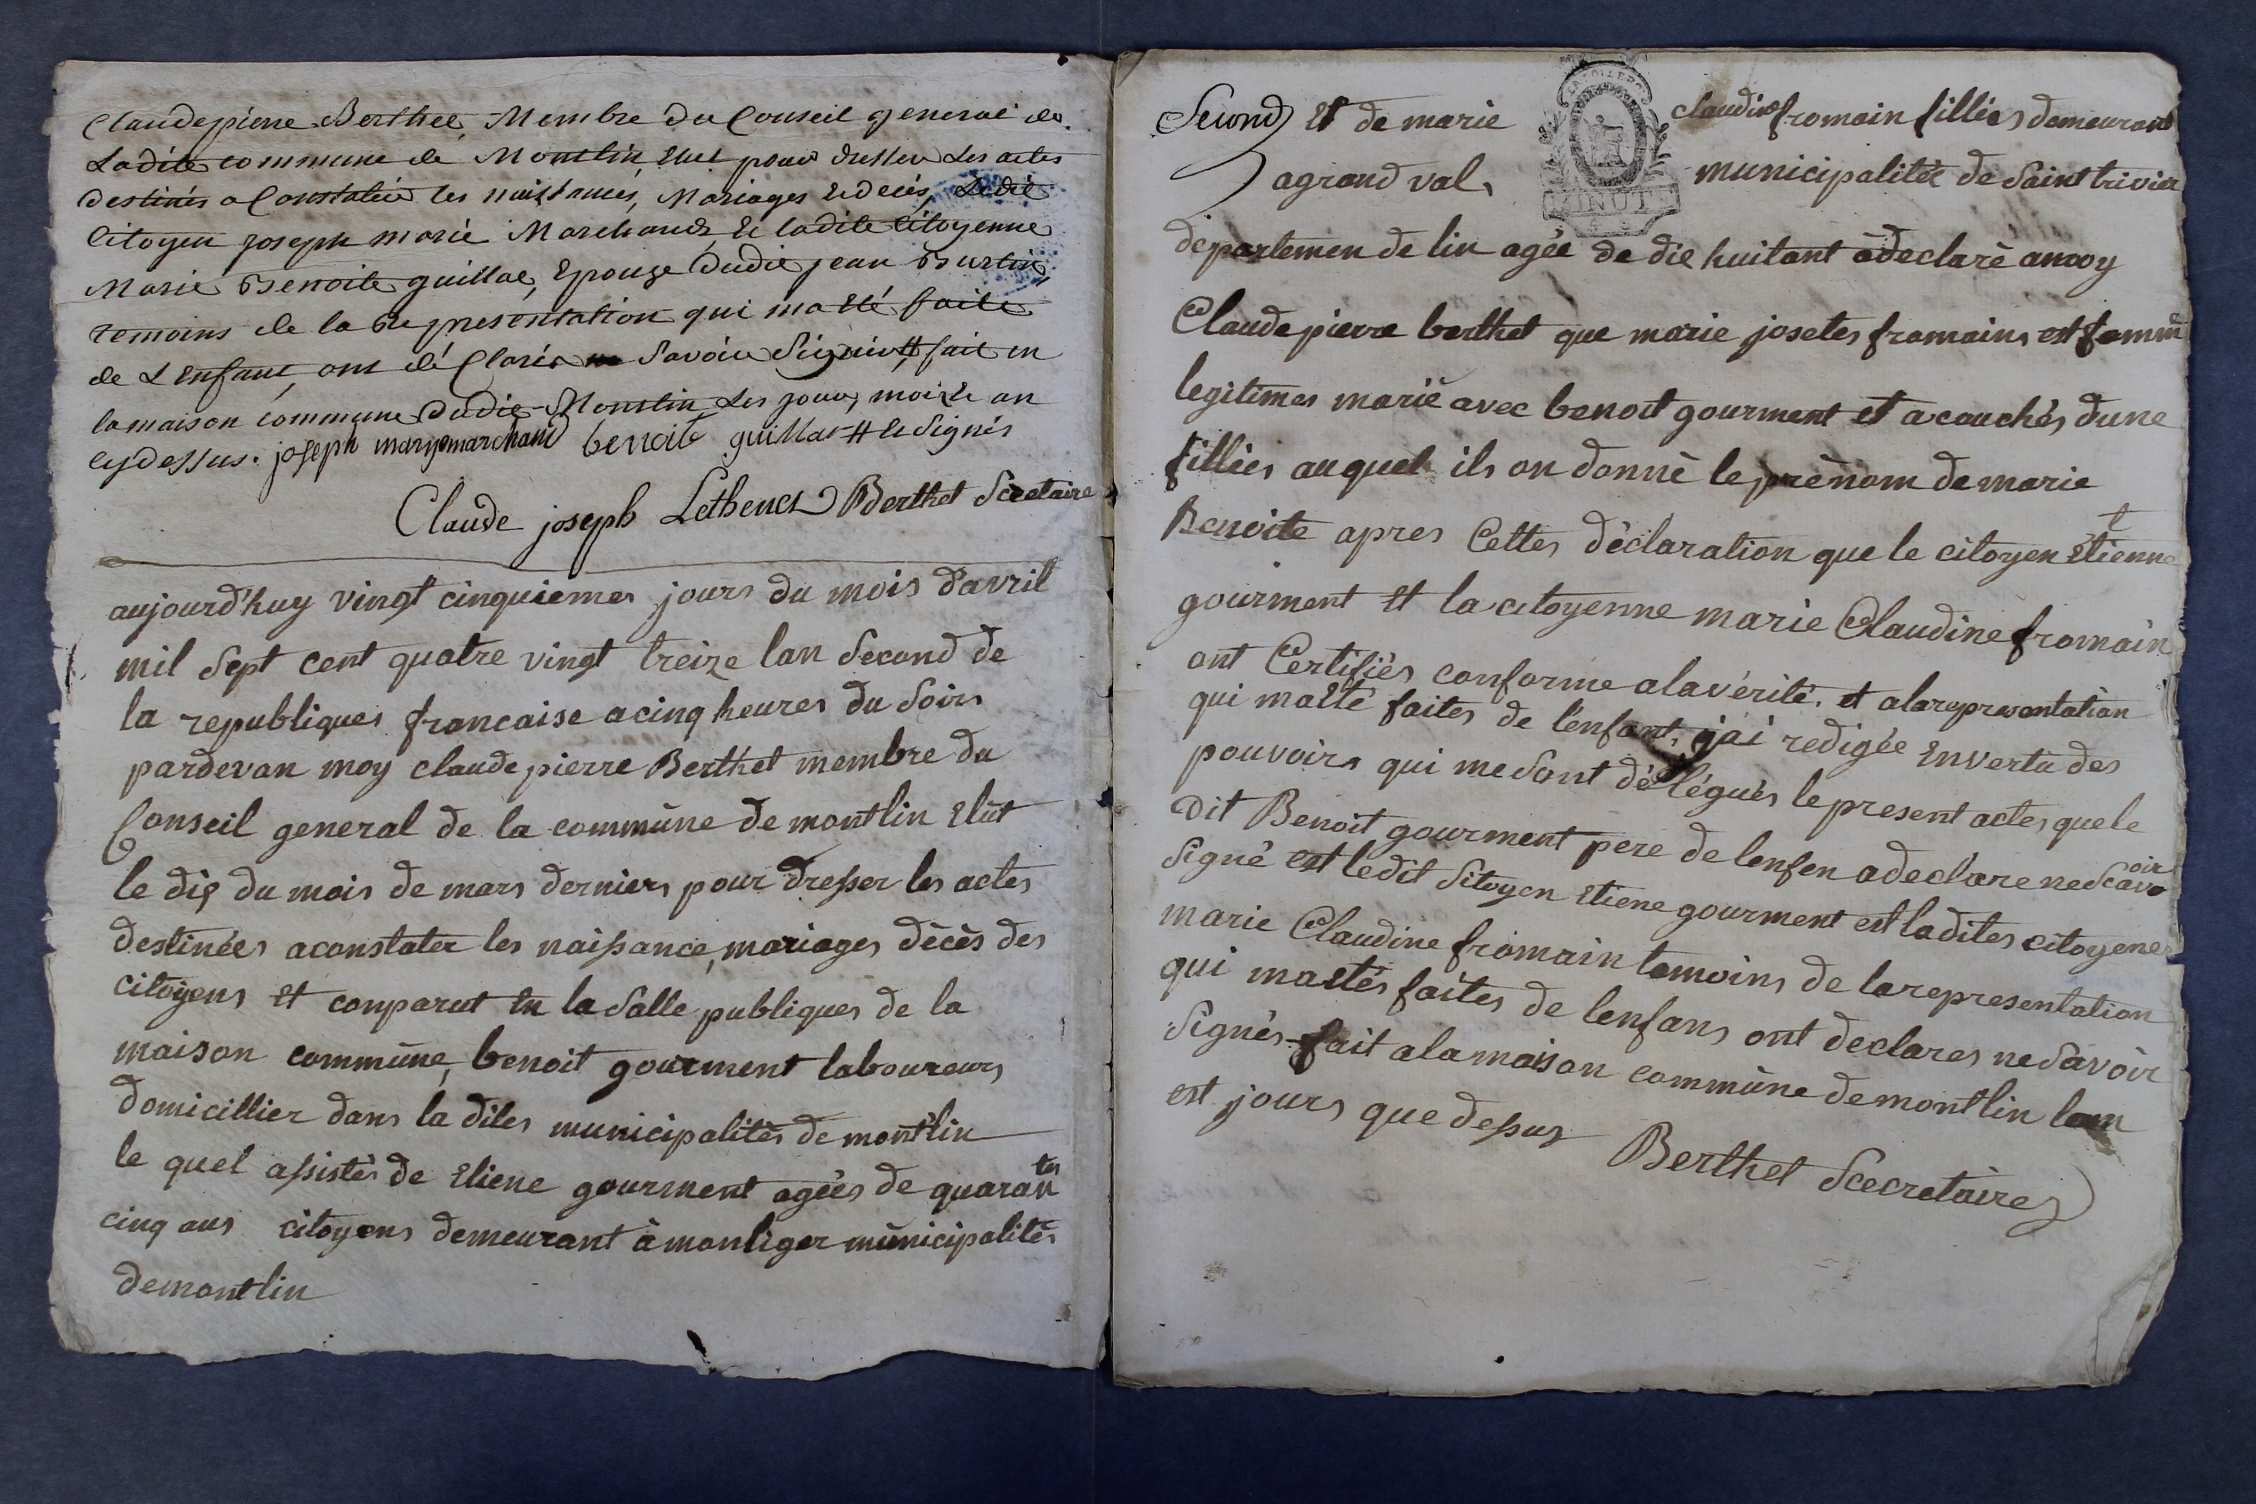 Claudepierre Berthet, Membre du Conseil general de
Ladite commune de Montlin, Elut pour dresser Les actes
destinés a Constatér les naissances, Mariages et decés, Ledit
Citoyen joseph marie Marchand, et ladite Citoyenne
Marie Benoite guillat, Epouze dudit jean
temoins de la Representation qui ma Eté faite
de L'enfant, ont dé Claréz Savoir Signér # fait en
la maison commune dudit Montlin Les jour, mois et an
cydessus. joseph maryemarchand benoite guillat # et Signés
Claude joseph Berthet Secretaire
aujourd'huy vingt cinquiemes jours du mois d'avril
mil sept cent quatre vingt treize lan Second de
la republiques francaise a cinq heures du Soirs
pardevan moy claude pierre Berthet membre du
Conseil general de la commùne de montlin Elût
le dix du mois de mars derniers pour dresser les actes
destinées aconstater les naissance, mariages dècès des
citoyens Et conparut En la Salle publiques de la
maison commùne, benoit gourment laboureurs
domicillier dans la dites municipalitès de montlin
le quel assistés de Etiene gourment agées de quaran
tes
cinq ans citoyens demeurant à monliger mùnicipalités
demontlin
MINUT
Second Et de marie claudine fromain filliés demeurant
agrand val municipalitée de Saint trivier
departemen de lin agée de die huitant àdeclarè amoy
Claude pierre berthet que marie josetes fromains est famm
legitimes marié avec benoit gourment et acouchés dune
filliés auquel ils on donnè le prénom de marie
Benoite apres Cettes dèclaration que le citoyen Etienne
gourment Et la citoyenne marie Claudine fromain
ont Certifiés conforme alavérité. et alarepresentation
qui ma Eté faites de l'enfant, jai redigée Envertu des
pouvoirs qui me Sont délégués le present actes que le
dit Benoit gourment pere de lenfen adeclare nedScavo
oir
Signé est ledit Sitoyen Etiene gourment est ladites citoyene
marie Claudine fromain temoins de larepresentation
qui ma Etés faites de lenfans ont declares ne Savoir
Signés fait alamaison commùne demontlin lan
est jours que dessus
Berthet Scecretaires